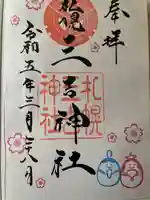 奉拝
札幌
三吉神社
札幌
神社
令和五年三月